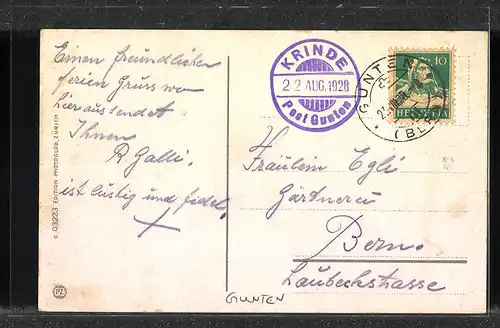 Einen freundlichen
feriengruss von
hier aus sendet
Ihnen
R. Galli.
ist lustig und fidel.
C 03223 EDITION PHOTOGLOB, ZÜRICH
PZ
KRINDE
22 AUG. 1928
Post Gunten
GUNTEN
(BE
10
HELVETIA
Fräulein Egli
Gärtnerei
Bern.
Laubeckstrasse
GUNTEN